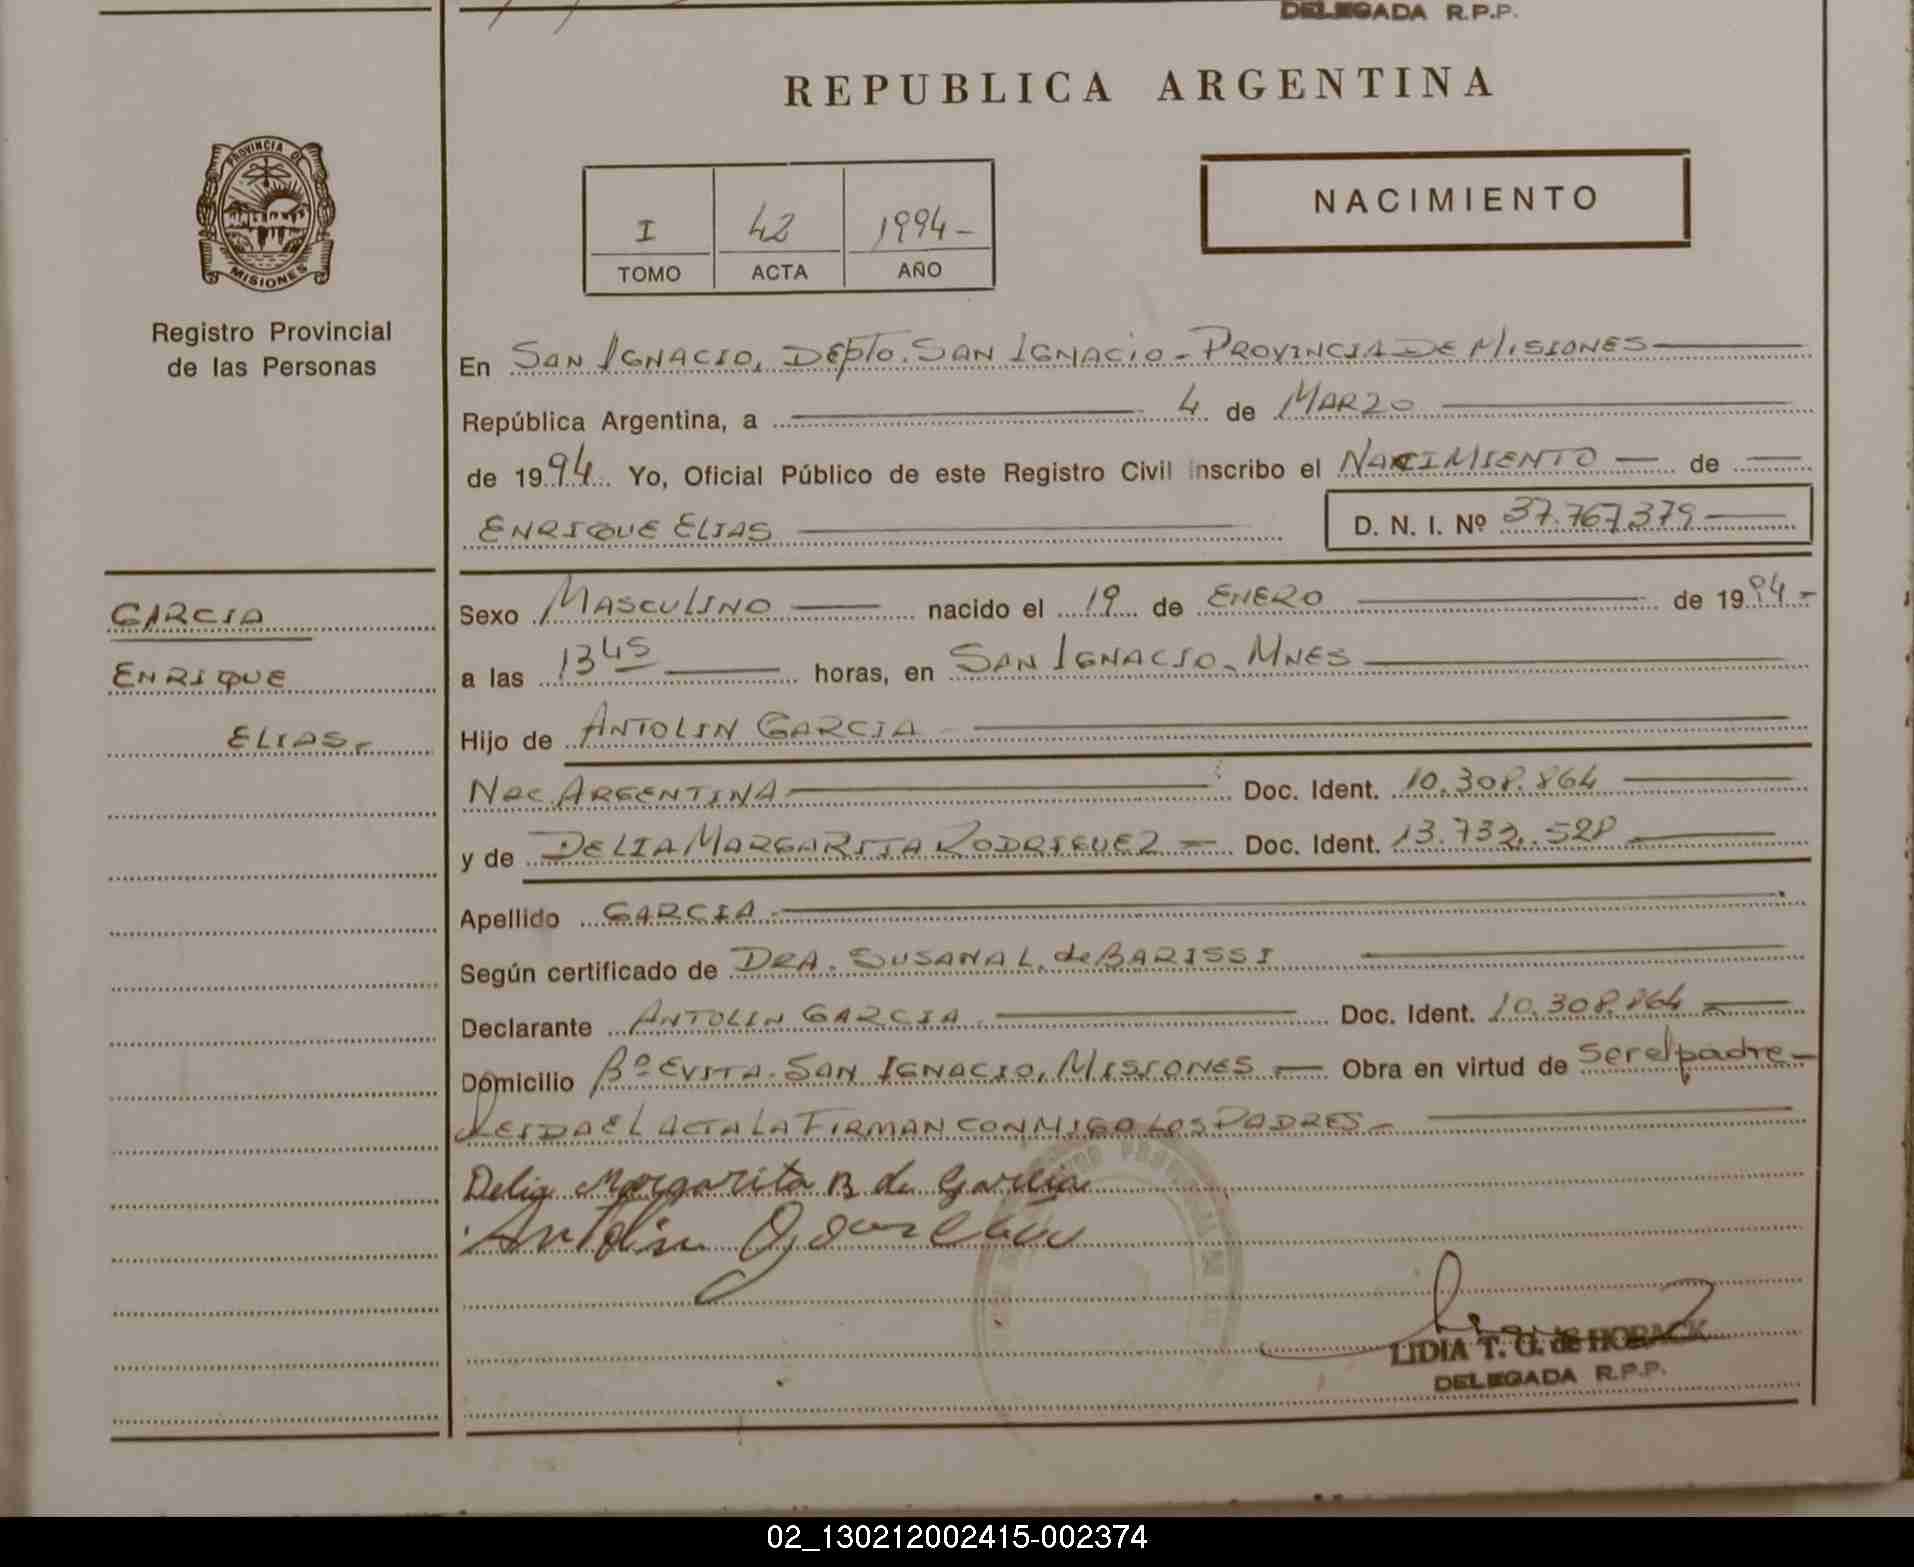 DELEGADA R.P.P.
REPUBLICA ARGENTINA
PROVINCIA DE
MISIONES
Registro Provincial
de las Personas
I 42 1994-
TOMO ACTA AÑO
NACIMIENTO
En SAN IGNACIO, DEpTO. SAN IGNACIO - PROVINCIA DE MISIONES
República Argentina, a 4 de MARZO
de 1994. Yo, Oficial Público de este Registro Civil inscribo el NACIMIENTO de
ENRIQUE ELIAS D. N. I. Nº 37.767.379
GARCIA
ENRIQUE
ELIAS.-
Sexo MASCULINO nacido el 19 de ENERO de 1994.-
a las 13 45 horas, en SAN IGNACIO. MNES
Hijo de ANTOLIN GARCIA
NAC ARGENTINA Doc. Ident. 10.308.864
y de DELIA MARGARITA RODRIGUEZ Doc. Ident. 13.732.528
Apellido GARCIA
Según certificado de DRA. SUSANA L. de BARISSI
Declarante ANTOLIN GARCIA Doc. Ident. 10.308.864
Domicilio Bº EVITA. SAN IGNACIO, MISIONES Obra en virtud de ser el padre
LEIDA EL ACTA LA FIRMAN CONMIGO LOS PADRES.-
Delia Margarita R de Garcia
Antolin Garcia
LIDIA T. G. de HORACK
DELEGADA R.P.P.
02_130212002415-002374